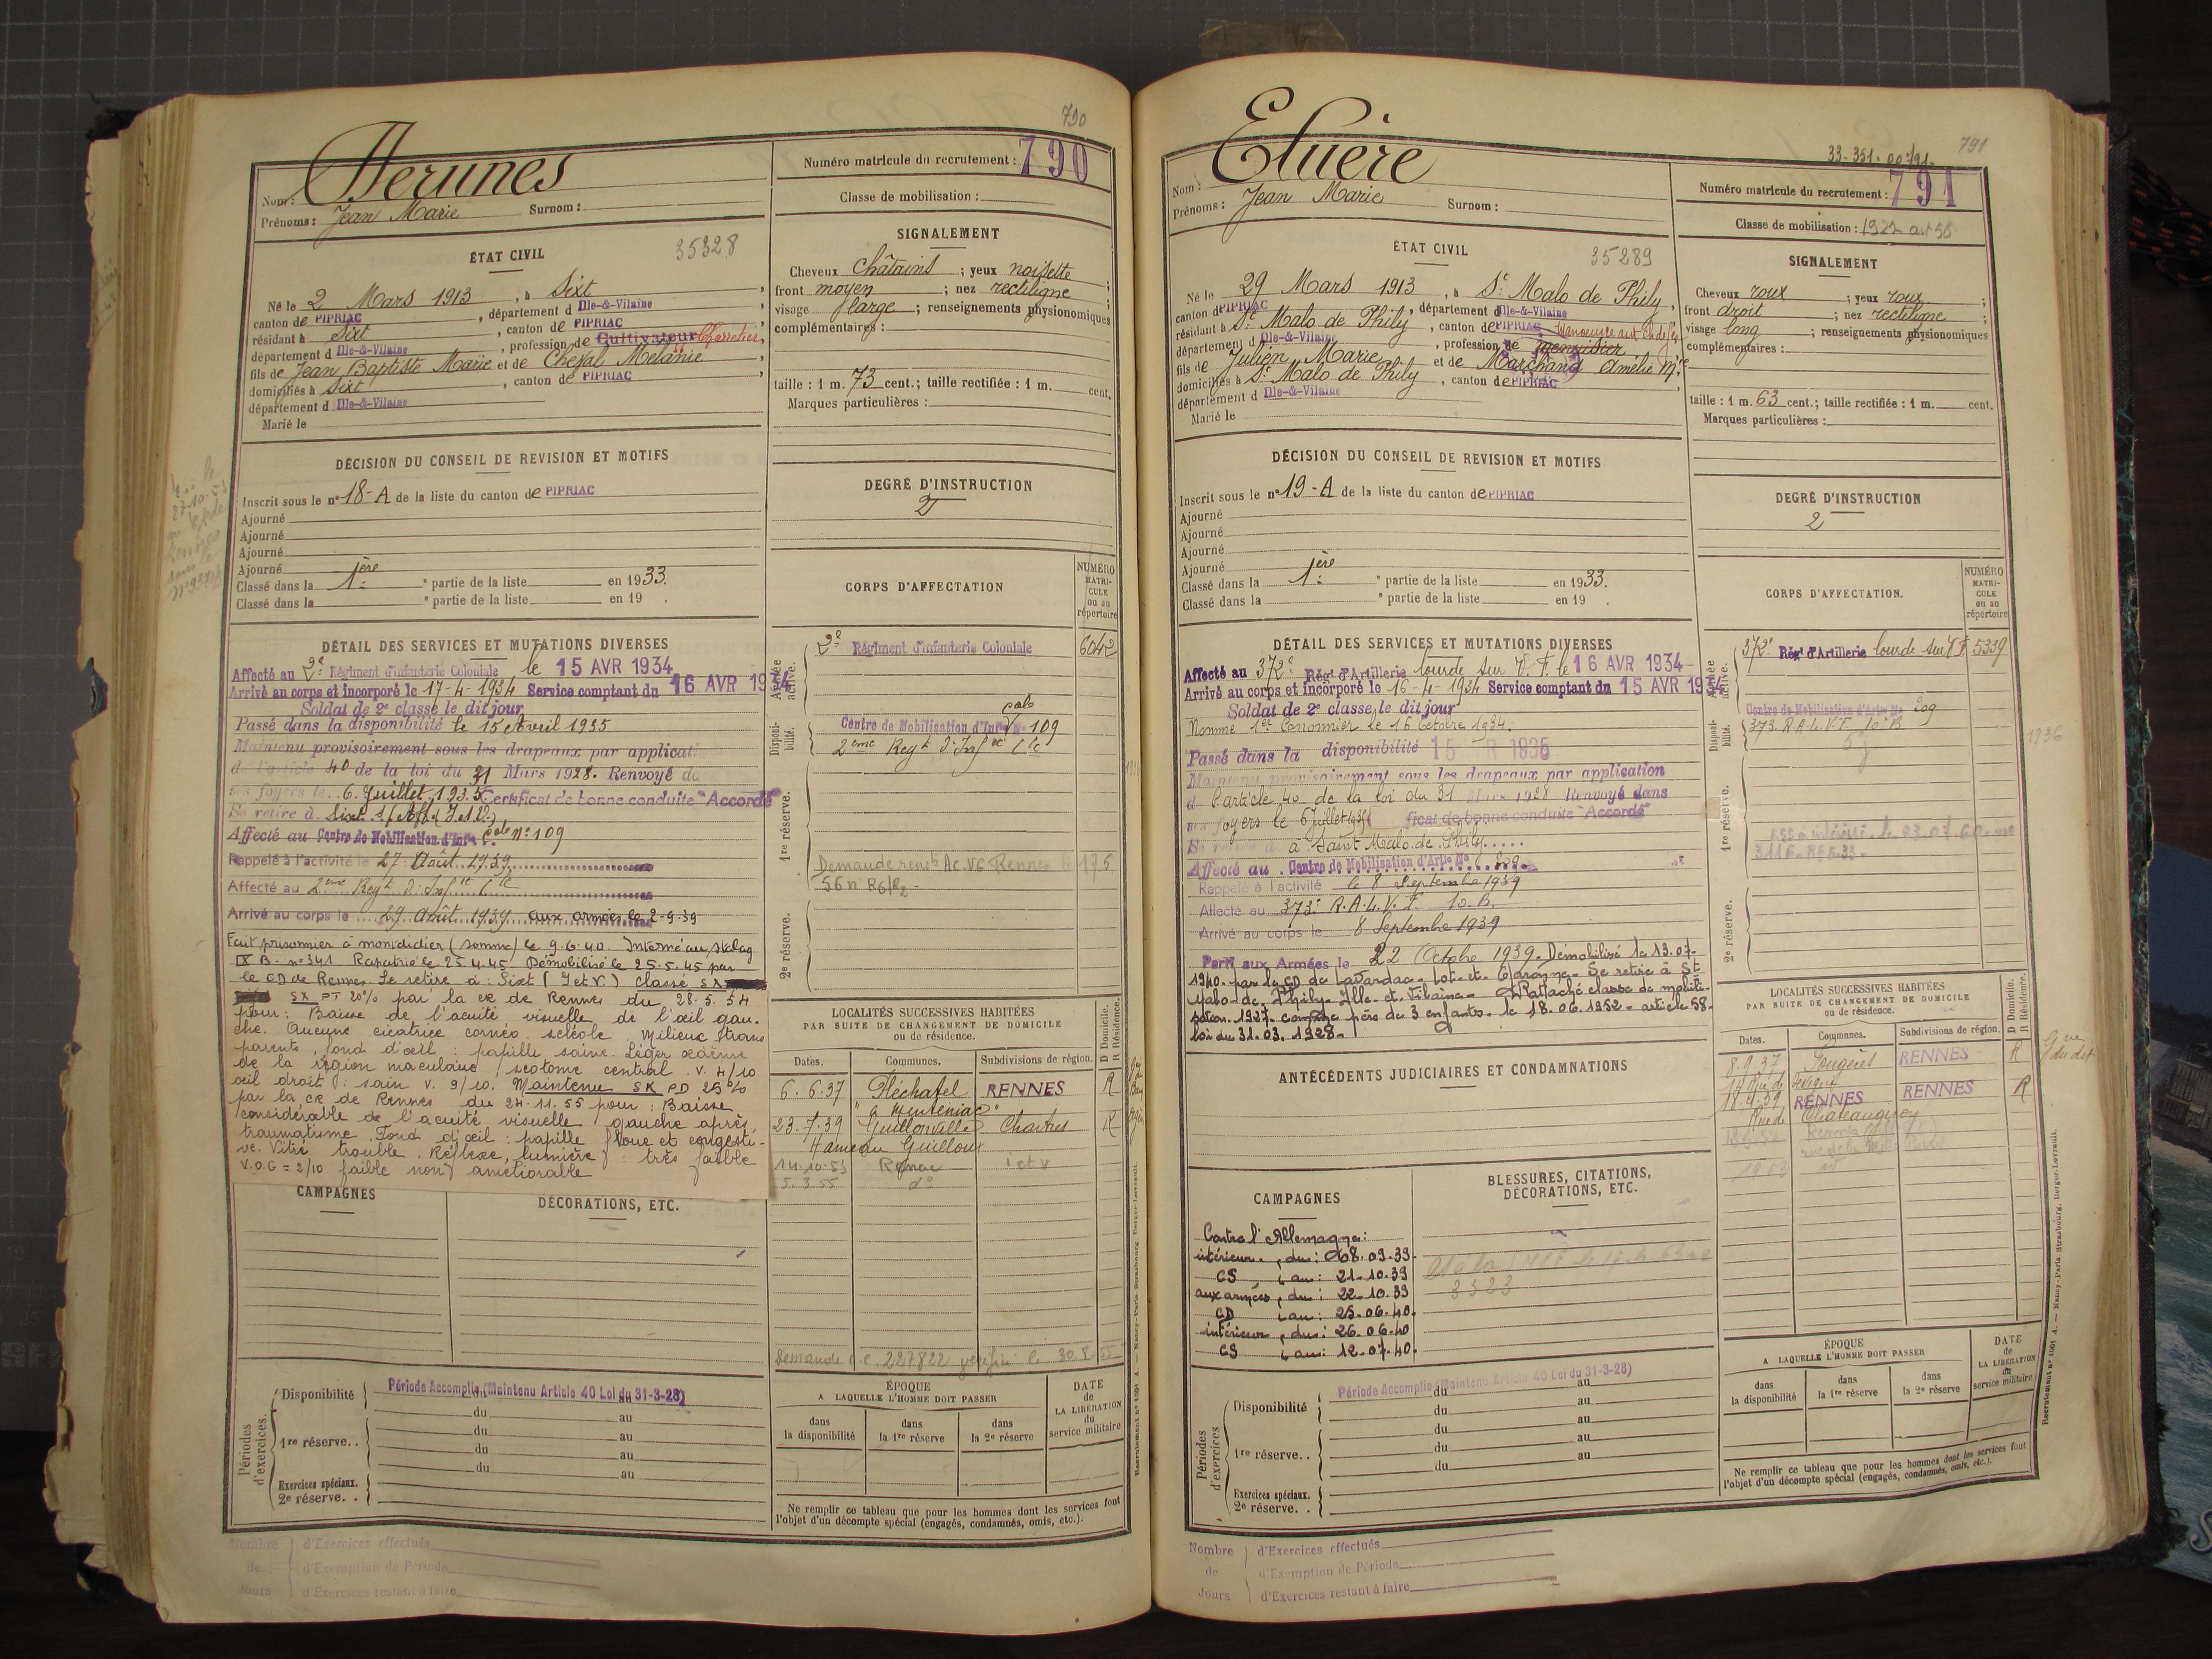 790
Nom :
Prénoms : Jean Marie Surnom :
Numéro matricule du recrutement : 790
Classe de mobilisation :
ÉTAT CIVIL 35328
Né le 2 Mars 1913, à Sixt,
canton de PIPRIAC, département d Ille-&-Vilaine
résidant à Sixt, canton de PIPRIAC
département d Ille-&-Vilaine, profession de Cultivateur Charretier,
fils de Jean Baptiste Marie et de Cheval Melanie
domiciliés à Sixt, canton de PIPRIAC
département d Ille-&-Vilaine
Marié le
SIGNALEMENT
Cheveux Châtains ; yeux noisette
front moyen ; nez rectiligne ;
visage large ; renseignements physionomiques
complémentaires :
taille : 1 m. 73 cent.; taille rectifiée : 1 m. cent.
Marques particulières :
DÉCISION DU CONSEIL DE REVISION ET MOTIFS
Inscrit sous le n° 18-A de la liste du canton de PIPRIAC
Ajourné
Ajourné
Ajourné
Ajourné
Classé dans la 1ère partie de la liste en 1933.
Classé dans la e partie de la liste en 19 .
DEGRÉ D'INSTRUCTION
2
CORPS D'AFFECTATION
NUMÉRO MATRICULE ou au répertoire
DÉTAIL DES SERVICES ET MUTATIONS DIVERSES
Affecté au 2e Régiment d'Infanterie Coloniale le 15 AVR 1934
Arrivé au corps et incorporé le 17-4-1934 Service comptant du 16 AVR 1934
Soldat de 2e classe le dit jour
Passé dans la disponibilité le 15 Avril 1935
Maintenu provisoirement sous les drapeaux par applicati
de l'article 40 de la loi du 31 Mars 1928. Renvoyé da
ses foyers le 6 Juillet 1935 Certificat de bonne conduite "Accordé"
Se retire à Sixt s/ Aff (I et V.)
Affecté au Centre de Mobilisation d'Infie Cale N° 109
Rappelé à l'activité le 27 Août 1939
Affecté au 2eme Regt d'Infie Cle
Arrivé au corps le 29 Août 1939 aux armées le 2-9-39
Fait prisonnier à montdidier (somme) le 9.6.40. Interné au stalag
IX B - n° 341 Rapatrié le 25.4.45 Démobilisé le 25.5.45 par
le CD de Rennes. Se retire à : Sixt (I et V) Classé SX
SX PT 20% par la CR de Rennes du 28.5.54
pour : Baisse de l'acuité visuelle de l'œil gau-
che. Aucune cicatrice cornéo scléole. Milieux trans
parents, fond d'œil : papille saine. Léger œdème
de la région maculaire, scotome central. V. 4/10
œil droit : sain V. 9/10. Maintenu SX PD 25%
par la CR de Rennes du 24.11.55 pour : Baisse
considérable de l'acuité visuelle gauche après
traumatisme. Fond d'œil : papille floue et congesti-
ve. Vitré trouble. Réflexe, lumière : très faible
V.O.G = 2/10 faible non améliorable
2e Régiment d'Infanterie Coloniale 6042
Centre de Mobilisation d'Infie Cale N° 109
2eme Regt d'Infie Cle
Armée active.
Disponibilité.
1re réserve.
2e réserve.
Demande rens. Ac. VG Rennes 175
56 n R6/R2
LOCALITÉS SUCCESSIVES HABITÉES
PAR SUITE DE CHANGEMENT DE DOMICILE
ou de résidence.
D Domicile. R Résidence.
Dates. Communes. Subdivisions de région.
6.6.37 Pléchatel RENNES R
23-7-39 Guillonville Chartres R
Hameau Guilloux
14.10.53 Renac I et V
5.3.55 d°
CAMPAGNES
DÉCORATIONS, ETC.
Demande c.c. 227822 30.8.55
Périodes d'exercices.
Disponibilité Période Accomplie (Maintenu Article 40 Loi du 31-3-28)
du au
1re réserve. . du au
du au
du au
Exercices spéciaux.
2e réserve. .
ÉPOQUE
A LAQUELLE L'HOMME DOIT PASSER
dans la disponibilité
dans la 1re réserve
dans la 2e réserve
DATE de LA LIBÉRATION du service militaire
Ne remplir ce tableau que pour les hommes dont les services font
l'objet d'un décompte spécial (engagés, condamnés, omis, etc.).
Nombre de Jours
d'Exercices effectués
d'Exemption de Période
d'Exercices restant à faire
791
33-351-00791-
Nom : Eluère
Prénoms : Jean Marie Surnom :
Numéro matricule du recrutement : 791
Classe de mobilisation : 1927 art 58
ÉTAT CIVIL 35289
Né le 29 Mars 1913, à St Malo de Phily,
canton de PIPRIAC, département d Ille-&-Vilaine
résidant à St Malo de Phily, canton de PIPRIAC
département d Ille-&-Vilaine, profession de menuisier
fils de Julien Marie et de Marchand Amélie Mie
domiciliés à St Malo de Phily, canton de PIPRIAC
département d Ille-&-Vilaine
Marié le
SIGNALEMENT
Cheveux roux ; yeux roux ;
front droit ; nez rectiligne ;
visage long ; renseignements physionomiques
complémentaires :
taille : 1 m. 63 cent.; taille rectifiée : 1 m. cent.
Marques particulières :
DÉCISION DU CONSEIL DE REVISION ET MOTIFS
Inscrit sous le n° 19-A de la liste du canton de PIPRIAC
Ajourné
Ajourné
Ajourné
Ajourné
Classé dans la 1ère partie de la liste en 1933.
Classé dans la e partie de la liste en 19 .
DEGRÉ D'INSTRUCTION
2
CORPS D'AFFECTATION.
NUMÉRO MATRICULE ou au répertoire
DÉTAIL DES SERVICES ET MUTATIONS DIVERSES
Affecté au 372e Régt d'Artillerie lourde sur V. F. le 16 AVR 1934
Arrivé au corps et incorporé le 16-4-1934 Service comptant du 15 AVR 1934
Soldat de 2e classe le dit jour
Nommé 1er Canonnier le 16 Octobre 1934.
Passé dans la disponibilité 15 R 1935
Maintenu provisoirement sous les drapeaux par application
de l'article 40 de la loi du 31 Mars 1928 Renvoyé dans
ses foyers le 6 Juillet 1935 ficat de bonne conduite "Accordé"
Se retire à Saint Malo de Phily
Affecté au Centre de Mobilisation d'Artie No 809
Rappelé à l'activité le 8 Septembre 1939
Affecté au 373e R.A.L.V.F. 10.B.
Arrivé au corps le 8 Septembre 1939
Parti aux Armées le 22 Octobre 1939. Démobilisé le 13.07-
1940. par le CD de Lavardac - Lot-et-Garonne - Se retire à St
Malo-de-Phily-Ille-et-Vilaine - Rattaché classe de mobili-
sation 1927 comme père de 3 enfants - le 18.06.1952 - article 58.
loi du 31.03.1928.
372e Régt d'Artillerie lourde sur V F 5339
Centre de Mobilisation d'Artie No 809
373. R.A.L.V.F 10e B
1936
Armée active.
Disponibilité.
1re réserve.
2e réserve.
ANTÉCÉDENTS JUDICIAIRES ET CONDAMNATIONS
LOCALITÉS SUCCESSIVES HABITÉES
PAR SUITE DE CHANGEMENT DE DOMICILE
ou de résidence.
D Domicile. R Résidence.
Dates. Communes. Subdivisions de région.
8.9.37 Fougères RENNES R
18.4.39 RENNES RENNES R
Rue de Chateaugiron
CAMPAGNES
Contre l'Allemagne :
intérieur, du : 08.09.39.
CS, au : 21.10.39
aux armées, du : 22.10.39
CD au : 25.06.40.
intérieur, du : 26.06.40
CS au : 12.07.40.
BLESSURES, CITATIONS,
DÉCORATIONS, ETC.
3323
Périodes d'exercices
Disponibilité Période Accomplie (Maintenu Article 40 Loi du 31-3-28)
du au
du au
1re réserve. . du au
du au
du au
Exercices spéciaux.
2e réserve. .
ÉPOQUE
A LAQUELLE L'HOMME DOIT PASSER
dans la disponibilité
dans la 1re réserve
dans la 2e réserve
DATE de LA LIBÉRATION du service militaire
Ne remplir ce tableau que pour les hommes dont les services font
l'objet d'un décompte spécial (engagés, condamnés, omis, etc.).
Nombre de Jours
d'Exercices effectués
d'Exemption de Période
d'Exercices restant à faire